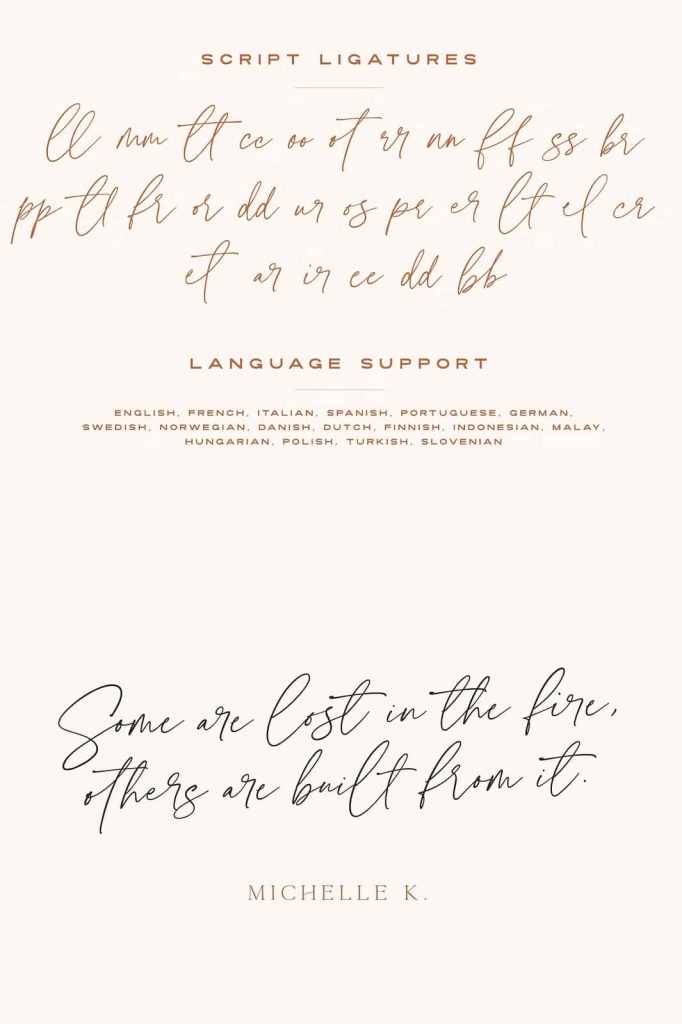 SCRIPT LIGATURES
ll mm tt cc oo ot rr nn ff ss br
pp tl fr or dd ur os pr er lt el cr
et ar ir ee dd bb
LANGUAGE SUPPORT
ENGLISH, FRENCH, ITALIAN, SPANISH, PORTUGUESE, GERMAN,
SWEDISH, NORWEGIAN, DANISH, DUTCH, FINNISH, INDONESIAN, MALAY,
HUNGARIAN, POLISH, TURKISH, SLOVENIAN
Some are lost in the fire,
others are built from it.
MICHELLE K.